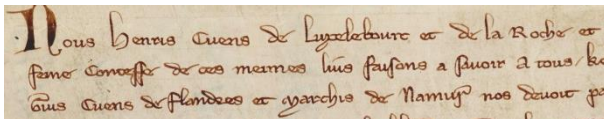 Nous henris Cuens de Luxelebourc et de la Roche et
feme Contesse de ces meimes lius faisons a sauoir a tous ke
Cuens de flandres et Marchis de Namur nos deuoit